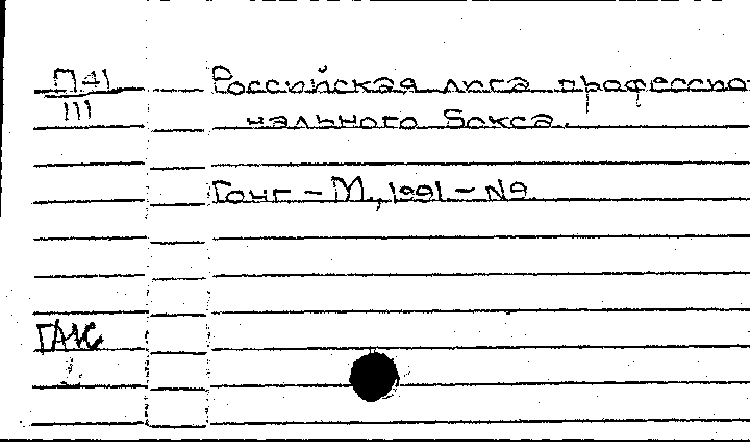 П41
111
Российская лига профессио
нального бокса.
Гонг – М., 1991 – №